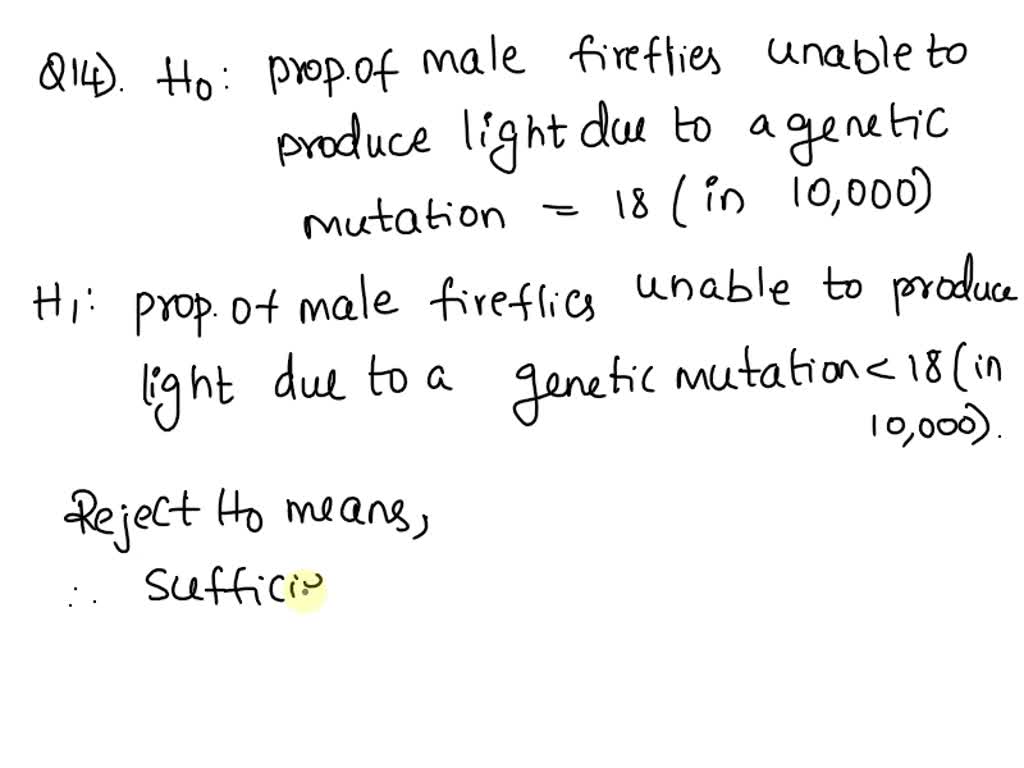 Q14). H0: prop. of male fireflies unable to
produce light due to a genetic
mutation = 18 (in 10,000)
H1: prop. of male fireflies unable to produce
light due to a genetic mutation < 18 (in
10,000).
Reject H0 means,
∴ Suffici